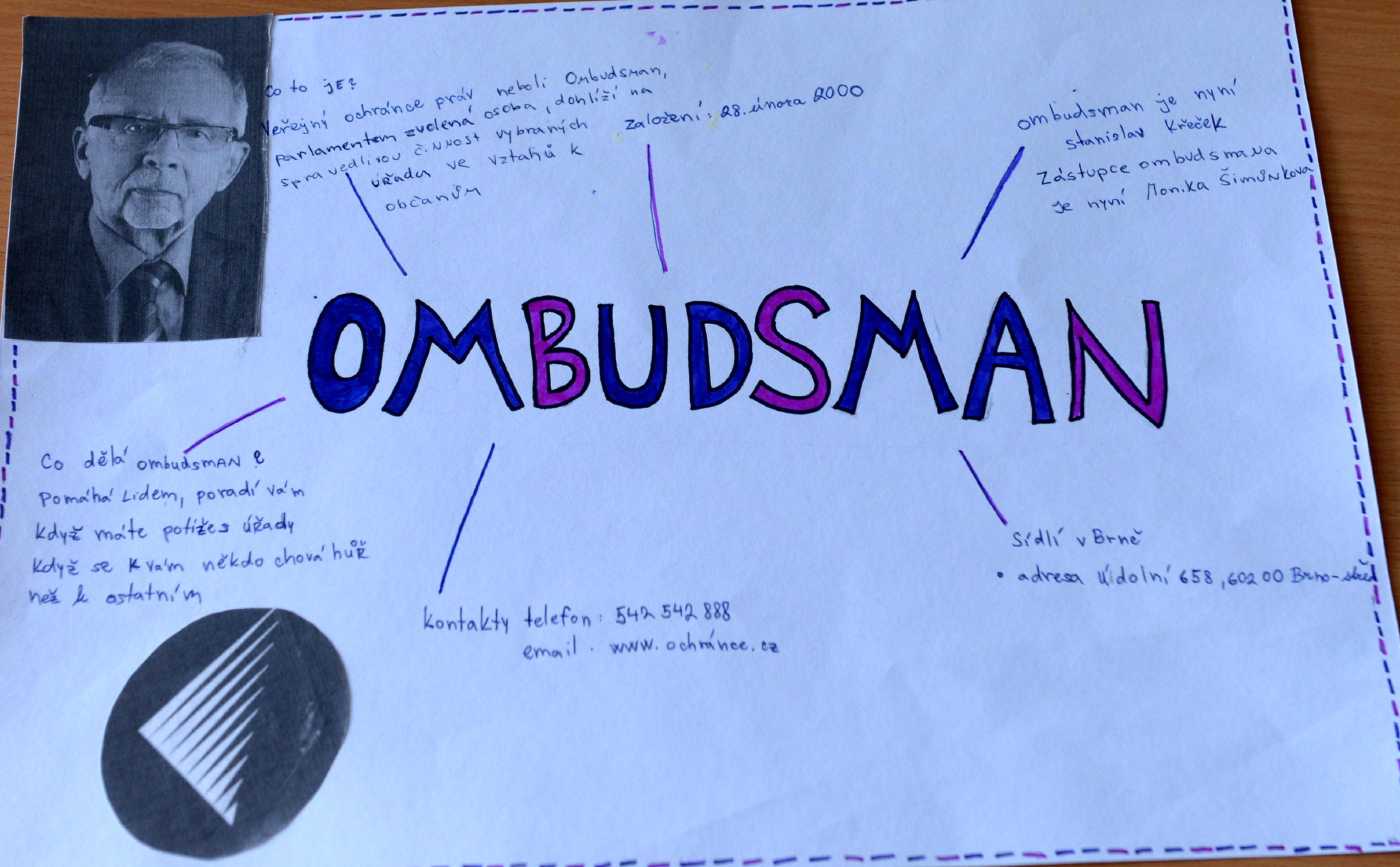 Co to je?
Veřejný ochránce práv neboli Ombudsman,
parlamentem zvolená osoba, dohlíží na
spravedlivou činnost vybraných
úřadu ve vztahů k
občanům
Založení: 28. února 2000
ombudsman je nyní
stanislav Křeček
Zástupce ombudsmana
je nyní Monika Šimůnkova
OMBUDSMAN
Co dělá ombudsman?
Pomáhá Lidem, poradí vám
Když máte potíže s úřady
Když se k vám někdo chová hůř
než k ostatním
kontakty telefon: 542 542 888
email. www.ochránce.cz
Sídlí v Brně
• adresa Údolní 658, 602 00 Brno-střed